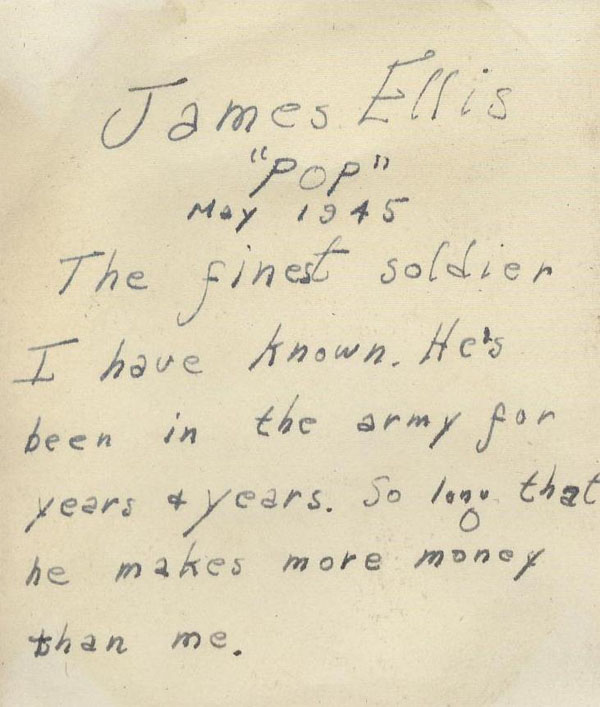 James Ellis
"POP"
May 1945
The finest soldier
I have known. He's
been in the army for
years & years. So long that
he makes more money
than me.